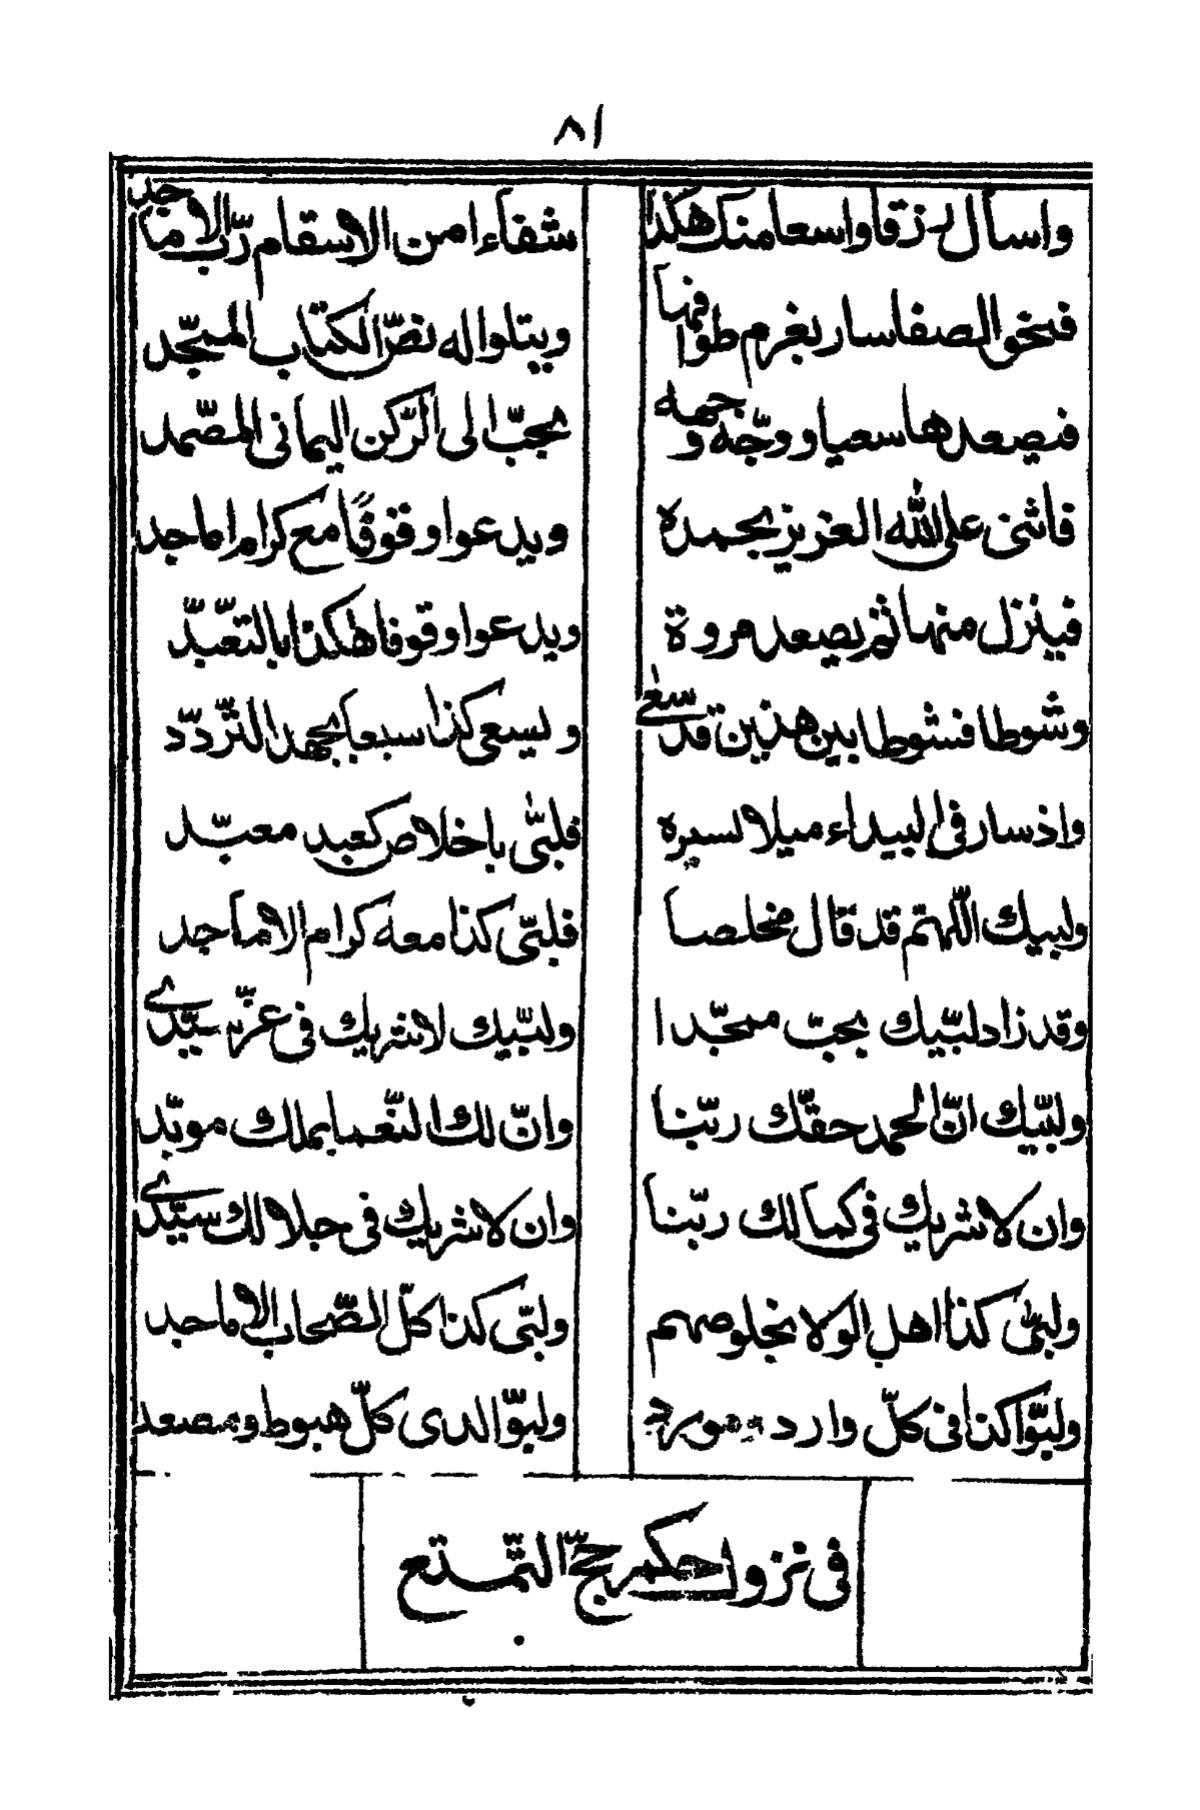 ٨١
واسأل رزقا واسعا منك هكذا شفاء امن الاسقام ربّ الاماجد
فنحو الصفا سار بغرم طوافها ويتلوا له نصّ الكتاب الممجّد
فيصعدها سعيا ووجّه وجهه بجبّ الى الرّكن اليمانى المصّمد
فاثنى على الله العزيز بحمده ويدعوا وقوفًا مع كرام اماجد
فينزل منها ثم يصعد مروة ويدعوا وقوفا هكذا بالتعبّد
وشوطا فشوطا بين هذين قد سعى وليسعى كذا سبعا بجهد التّردّد
واذ سار فى البيداء ميلا لسيره فلبّى باخلاص كعبد معبّد
ولبيك اللّهمّ قد قال مخلصا فلبّى كذا معه كرام الاماجد
وقد زاد لبّيك بجبّ ممجّدا ولبّيك لا شريك فى عزّ سيّدى
ولبّيك انّ الحمد حقّك ربّنا وانّ لك النّعما بملك مويّد
وان لا شريك فى كمالك ربّنا وان لا شريك فى جلالك سيّدى
ولبّى كذا اهل الولا بخلوصهم ولبّى كذا كلّ الصّحاب الاماجد
ولبّوا كذا فى كلّ وارد ولبّوا الدى كلّ هبوط ومصعد
فى نزول حكم حجّ التّمتع